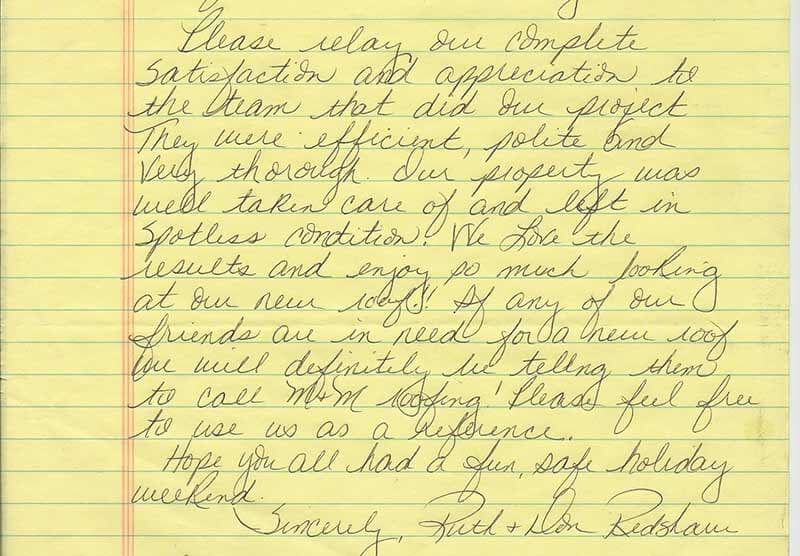 Please relay our complete
satisfaction and appreciation to
the team that did our project
They were efficient, polite and
very thorough. Our property was
well taken care of and left in
spotless condition! We love the
results and enjoy so much looking
at our new roof!! If any of our
friends are in need for a new roof
we will definitely be tellng them
to call M+M roofing! Please feel free
to use us as a reference.
Hope you all had a fun, safe holiday
weekend.
Sincerely, Ruth + Don Redshaw